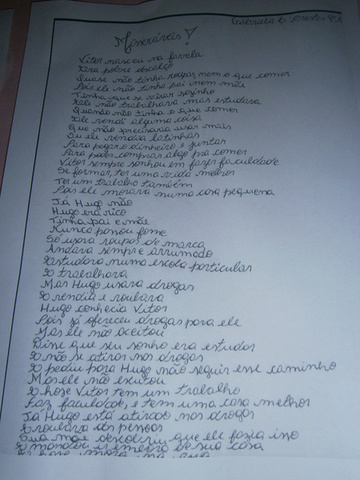 Gabriela
Vitor nasceu na favela
Era pobre
Quase não tinha roupas nem o que comer
Pois ele não tinha pai nem mãe
Tinha que se virar sozinho
Ele não trabalhava mas estudava
Quando não tinha o que comer
Ele vendia alguma coisa
Que não precisava usar mais
Ou ele vendia latinhas
Para pegar o dinheiro e juntar
Para poder comprar algo pra comer
Vitor sempre sonhou em fazer faculdade
Se formar, ter uma vida melhor
Ter um trabalho também
Pois ele morava numa casa pequena
Já Hugo não
Hugo era rico
Tinha pai e mãe
Nunca passou fome
Só usava roupas de marca
Andava sempre arrumado
Estudava numa escola particular
E trabalhava
Mas Hugo usava drogas
E vendia e roubava
Hugo conhecia Vitor
Pois já ofereceu drogas para ele
Mas ele não aceitou
Disse que seu sonho era estudar
E não se atirar nas drogas
E pediu para Hugo não seguir esse caminho
Mas ele não
E hoje Vitor tem um trabalho
Faz faculdade, e tem uma casa melhor
Já Hugo está atirado nas drogas
E roubava as pessoas
Sua mãe descobriu que ele fazia isso
E mandou ir embora de sua casa